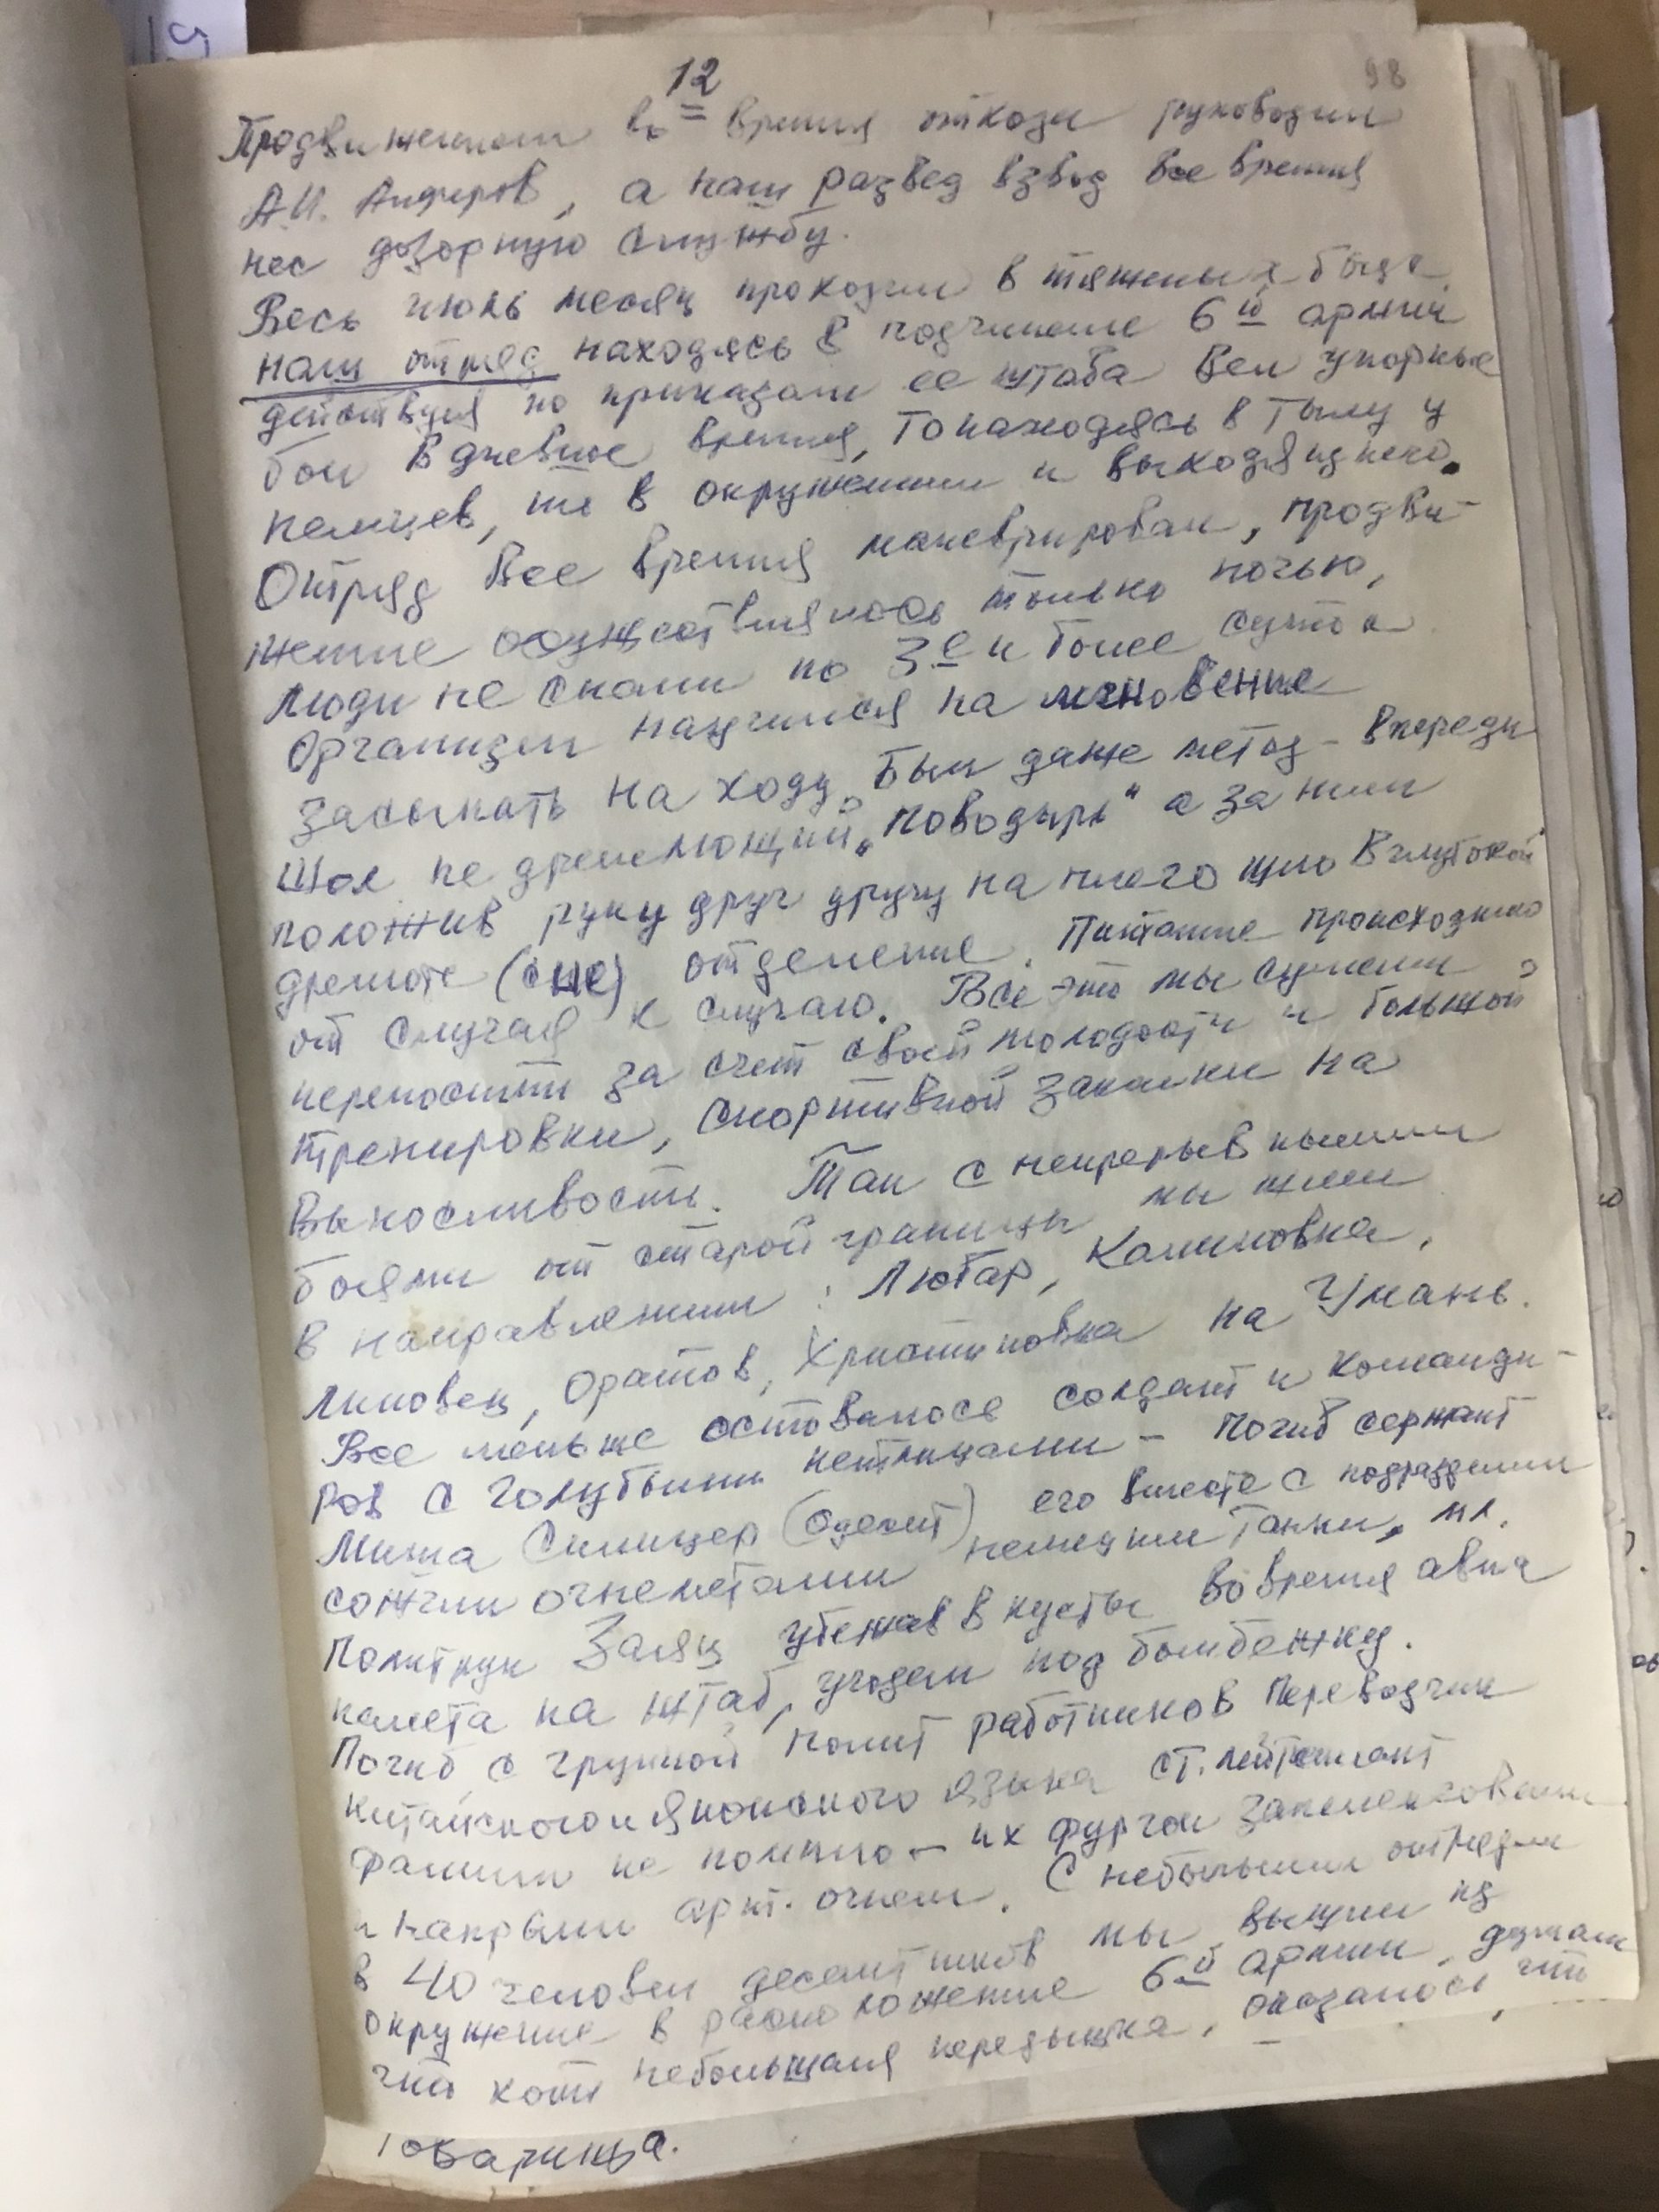 12
98
Продвижением во время отхода руководил
А.И. Анферов, а наш развед взвод все время
нес дозорную службу.
Весь июль месяц проходил в тяжелых боях
наш отряд находясь в подчинение 6й армии
действуя по приказам ее штаба вел упорные
бои в дневное время, то находясь в тылу у
немцев, то в окружении и выходя из него.
Отряд все время маневрировал, продви-
жение осуществлялось только ночью,
люди не спали по 3е и более суток
Организм научился на мгновение
засыпать на ходу. Был даже метод - впереди
шол не дремлющий „поводырь" а за ним
положив руку друг другу на плечо шло в глубокой
дремоте (сне) отделение. Питание происходило
от случая к случаю. Все это мы сумели
переносить за счет своей молодости и большой
тренировки, спортивной закалки на
выносливость. Так с непрерывными
боями от старой границы мы шли
в направлении: Любар, Калиновка,
Липовец, Оратов, Христиновка на Умань.
Все меньше оставалось солдат и команди-
ров с голубыми петлицами - погиб сержант
Миша Спицер (одесит) его вместе с
сожгли огнеметами немецкие танки, мл.
политрук Заяц убежав в кусты во время авиа
налета на штаб, угодил под бомбежку.
Погиб с группой полит работников переводчик
китайского и японского языка ст. лейтенант
фамили не помню - их фургон
и накрыли арт. огнем. С небольшим отрядом
в 40 человек десантников мы вышли из
окружение в расположение 6й армии, думали
что хоть небольшая передышка, оказалось что
товарища.